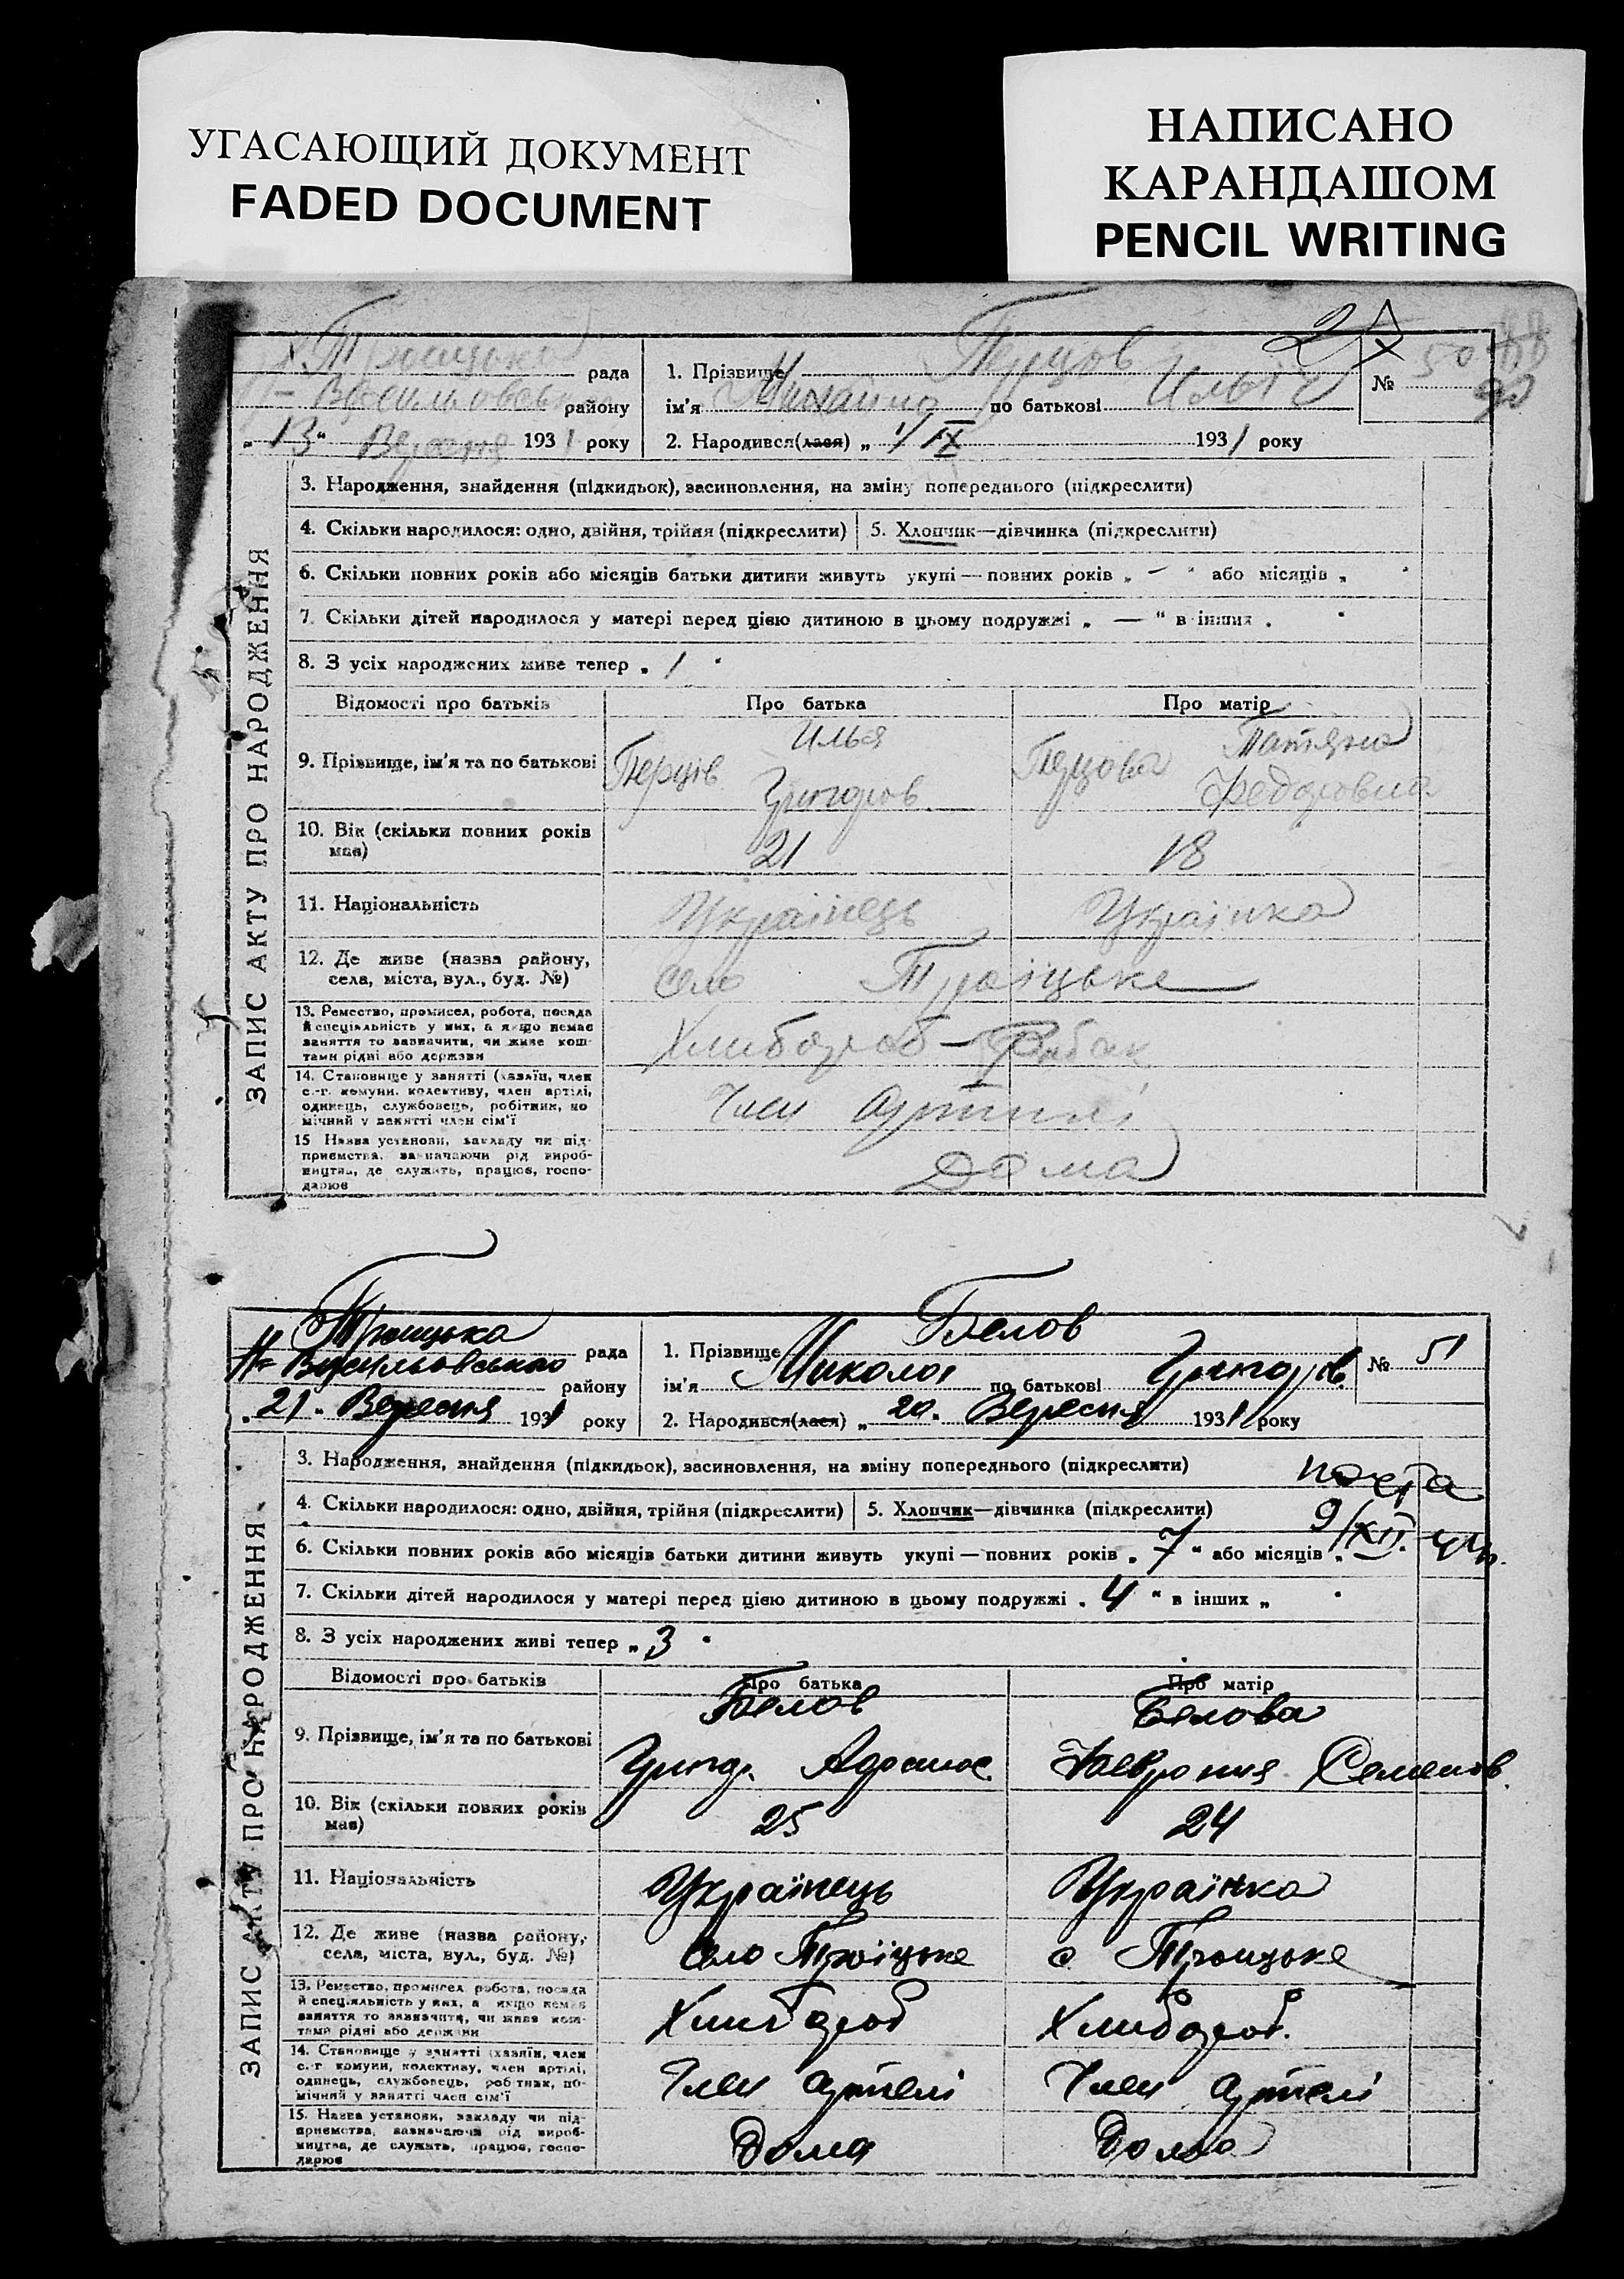 УГАСАЮЩИЙ ДОКУМЕНТ
FADED DOCUMENT
НАПИСАНО
КАРАНДАШОМ
PENCIL WRITING
рада
району
„ 13 “ Вересня 1931 року
1. Прізвище Перцов
ім'я Михайло по батькові Ильїч
2. Народився(лася) „ 1/IX 1931 року
№ 50
ЗАПИС АКТУ ПРО НАРОДЖЕННЯ
3. Народження, знайдення (підкидьок), засиновлення, на зміну попереднього (підкреслити)
4. Скільки народилося: одно, двійня, трійня (підкреслити) 5. Хлопчик—дівчинка (підкреслити)
6. Скільки повних років або місяців батьки дитини живуть укупі — повних років „ — “ або місяців „
7. Скільки дітей народилося у матері перед цією дитиною в цьому подружжі „ — “ в інших „
8. З усіх народжених живе тепер „ 1 “
Відомості про батьків Про батька Про матір
9. Прізвище, ім'я та по батькові Перців Илья Григоров. Перцова Татяна Федоровна
10. Вік (скільки повних років має) 21 18
11. Національність Українець Українка
12. Де живе (назва району, села, міста, вул., буд. №) село Троїцьке
13. Ремество, промисел, робота, посада й спеціяльність у них, а якщо немає заняття то зазначити, чи живе коштами рідні або держави Хлибороб — Рибак
14. Становище у занятті (хазяїн, член с.-г. комуни, колективу, член артілі, одинець, службовець, робітник, помічний у занятті член сім'ї Член артилі
15 Назва установи, закладу чи підприємства, зазначаючи рід виробництва, де служить, працює, господарює Дома
Троицька рада
Василььовського району
„ 21 „ Вересня 1931 року
1. Прізвище Белов
ім'я Микола по батькові Григоров.
2. Народився(лася) „ 20. Вересня 1931 року
№ 51
ЗАПИС АКТУ ПРО НАРОДЖЕННЯ
3. Народження, знайдення (підкидьок), засиновлення, на зміну попереднього (підкреслити)
4. Скільки народилося: одно, двійня, трійня (підкреслити) 5. Хлопчик—дівчинка (підкреслити)
9/XII.
6. Скільки повних років або місяців батьки дитини живуть укупі — повних років „ 7 “ або місяців „
7. Скільки дітей народилося у матері перед цією дитиною в цьому подружжі „ 4 “ в інших „
8. З усіх народжених живі тепер „ 3 “
Відомості про батьків Про батька Про матір
9. Прізвище, ім'я та по батькові Белов Григ. Белова Семенов.
10. Вік (скільки повних років має) 25 24
11. Національність Українець Українка
12. Де живе (назва району, села, міста, вул., буд. №) село Троїцьке с Троицьке
13. Ремество, промисел, робота, посада й спеціяльність у них, а якщо немає заняття то зазначити, чи живе коштами рідні або держави Хлибороб Хлибороб.
14. Становище у занятті (хазяїн, член с.-г. комуни, колективу, член артілі, одинець, службовець, робітник, помічний у занятті член сім'ї Член артелі Член артелі
15. Назва установи, закладу чи підприємства, зазначаючи рід виробництва, де служить, працює, господарює Дома Дома